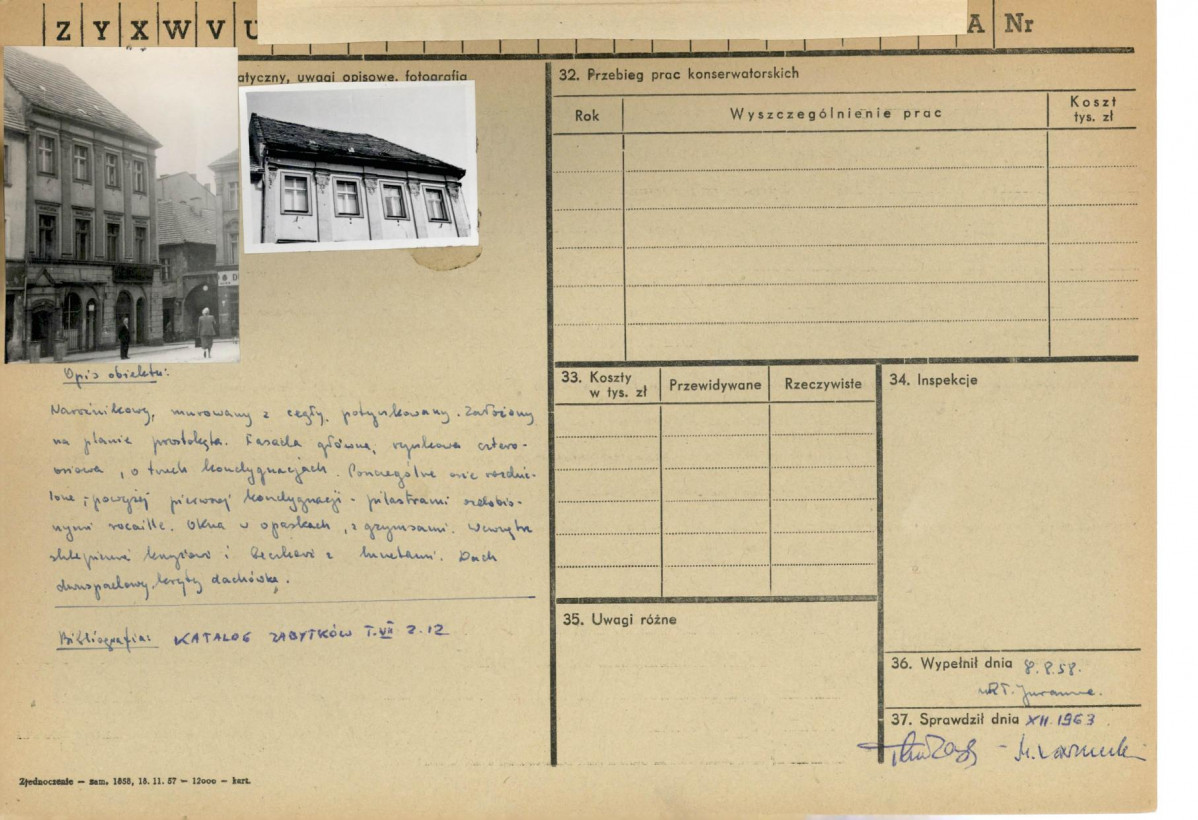 Z Y X W V U A Nr
atyczny, uwagi opisowe, fotografia
Opis obiektu:
Narożnikowy, murowany z cegły, potynkowany. Założony
na planie prostokąta. Fasada główna, rynkowa cztero-
osiowa, o trzech kondygnacjach. Poszczególne osie rozdzie-
lone, powyżej pierwszej kondygnacji - pilastrami ozdobio-
nymi rocaille. Okna w opaskach, z gzymsami. Wewnątrz
sklepienia krzyżowe i beczkowe z lunetami. Dach
dwuspadowy, kryty dachówką.
Bibliografia: KATALOG ZABYTKÓW T. VII Z. 12
Zjednoczenie — zam. 1858, 18. 11. 57 — 12000 — kart.
32. Przebieg prac konserwatorskich
Rok Wyszczególnienie prac Koszt
tys. zł
33. Koszty
w tys. zł Przewidywane Rzeczywiste
34. Inspekcje
35. Uwagi różne
36. Wypełnił dnia 8.8.58.
37. Sprawdził dnia XII.1963